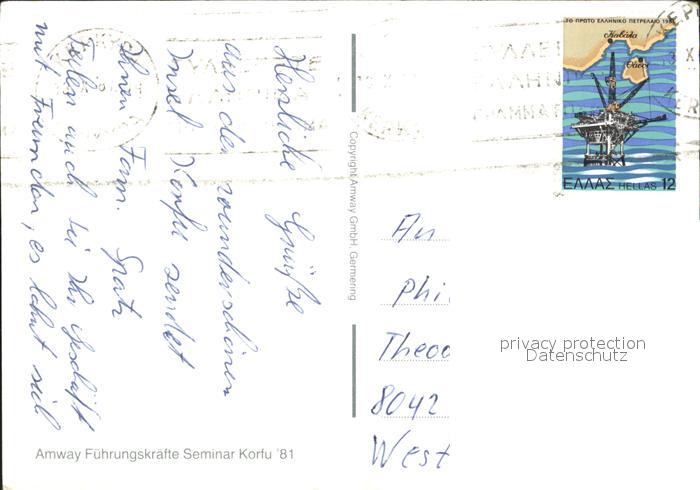 Herzliche Grüße
aus der wunderschönen
Insel Korfu sendet
Ihnen Fam.
auch
mit Freunden, es lohnt sich
Copyright Amway GmbH, Germering
Amway Führungskräfte Seminar Korfu '81
ΤΟ ΠΡΩΤΟ ΕΛΛΗΝΙΚΟ ΠΕΤΡΕΛΑΙΟ
Καβάλα
Θάσος
ΕΛΛΑΣ HELLAS 12
An
Phi
Theod
8042
West
privacy protection
Datenschutz